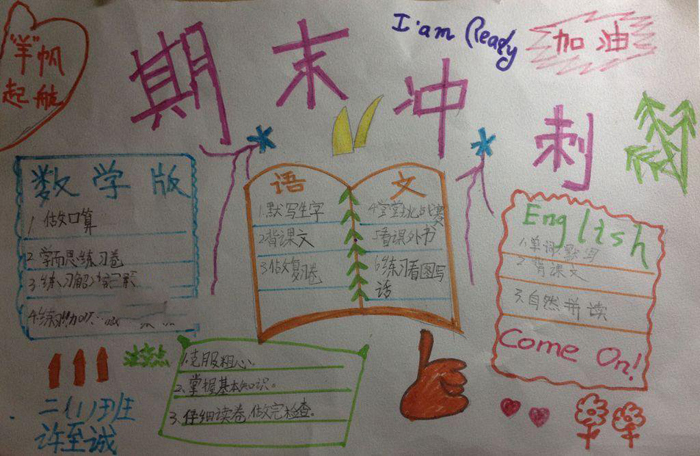 "羊"帆
起航
期末冲刺
I'am Ready
加油
数学版
1.做口算
2.学而思练习卷
3.练习解决问题
语文
1.默写生字
2.背课文
3.做复习卷
5.看课外书
6.练习看图写
话
English
1.单词默写
2.背课文
3.自然拼读
Come On!
注意点
1.克服粗心。
2.掌握基本知识。
3.仔细读卷,做完检查。
二(1)班
许至诚